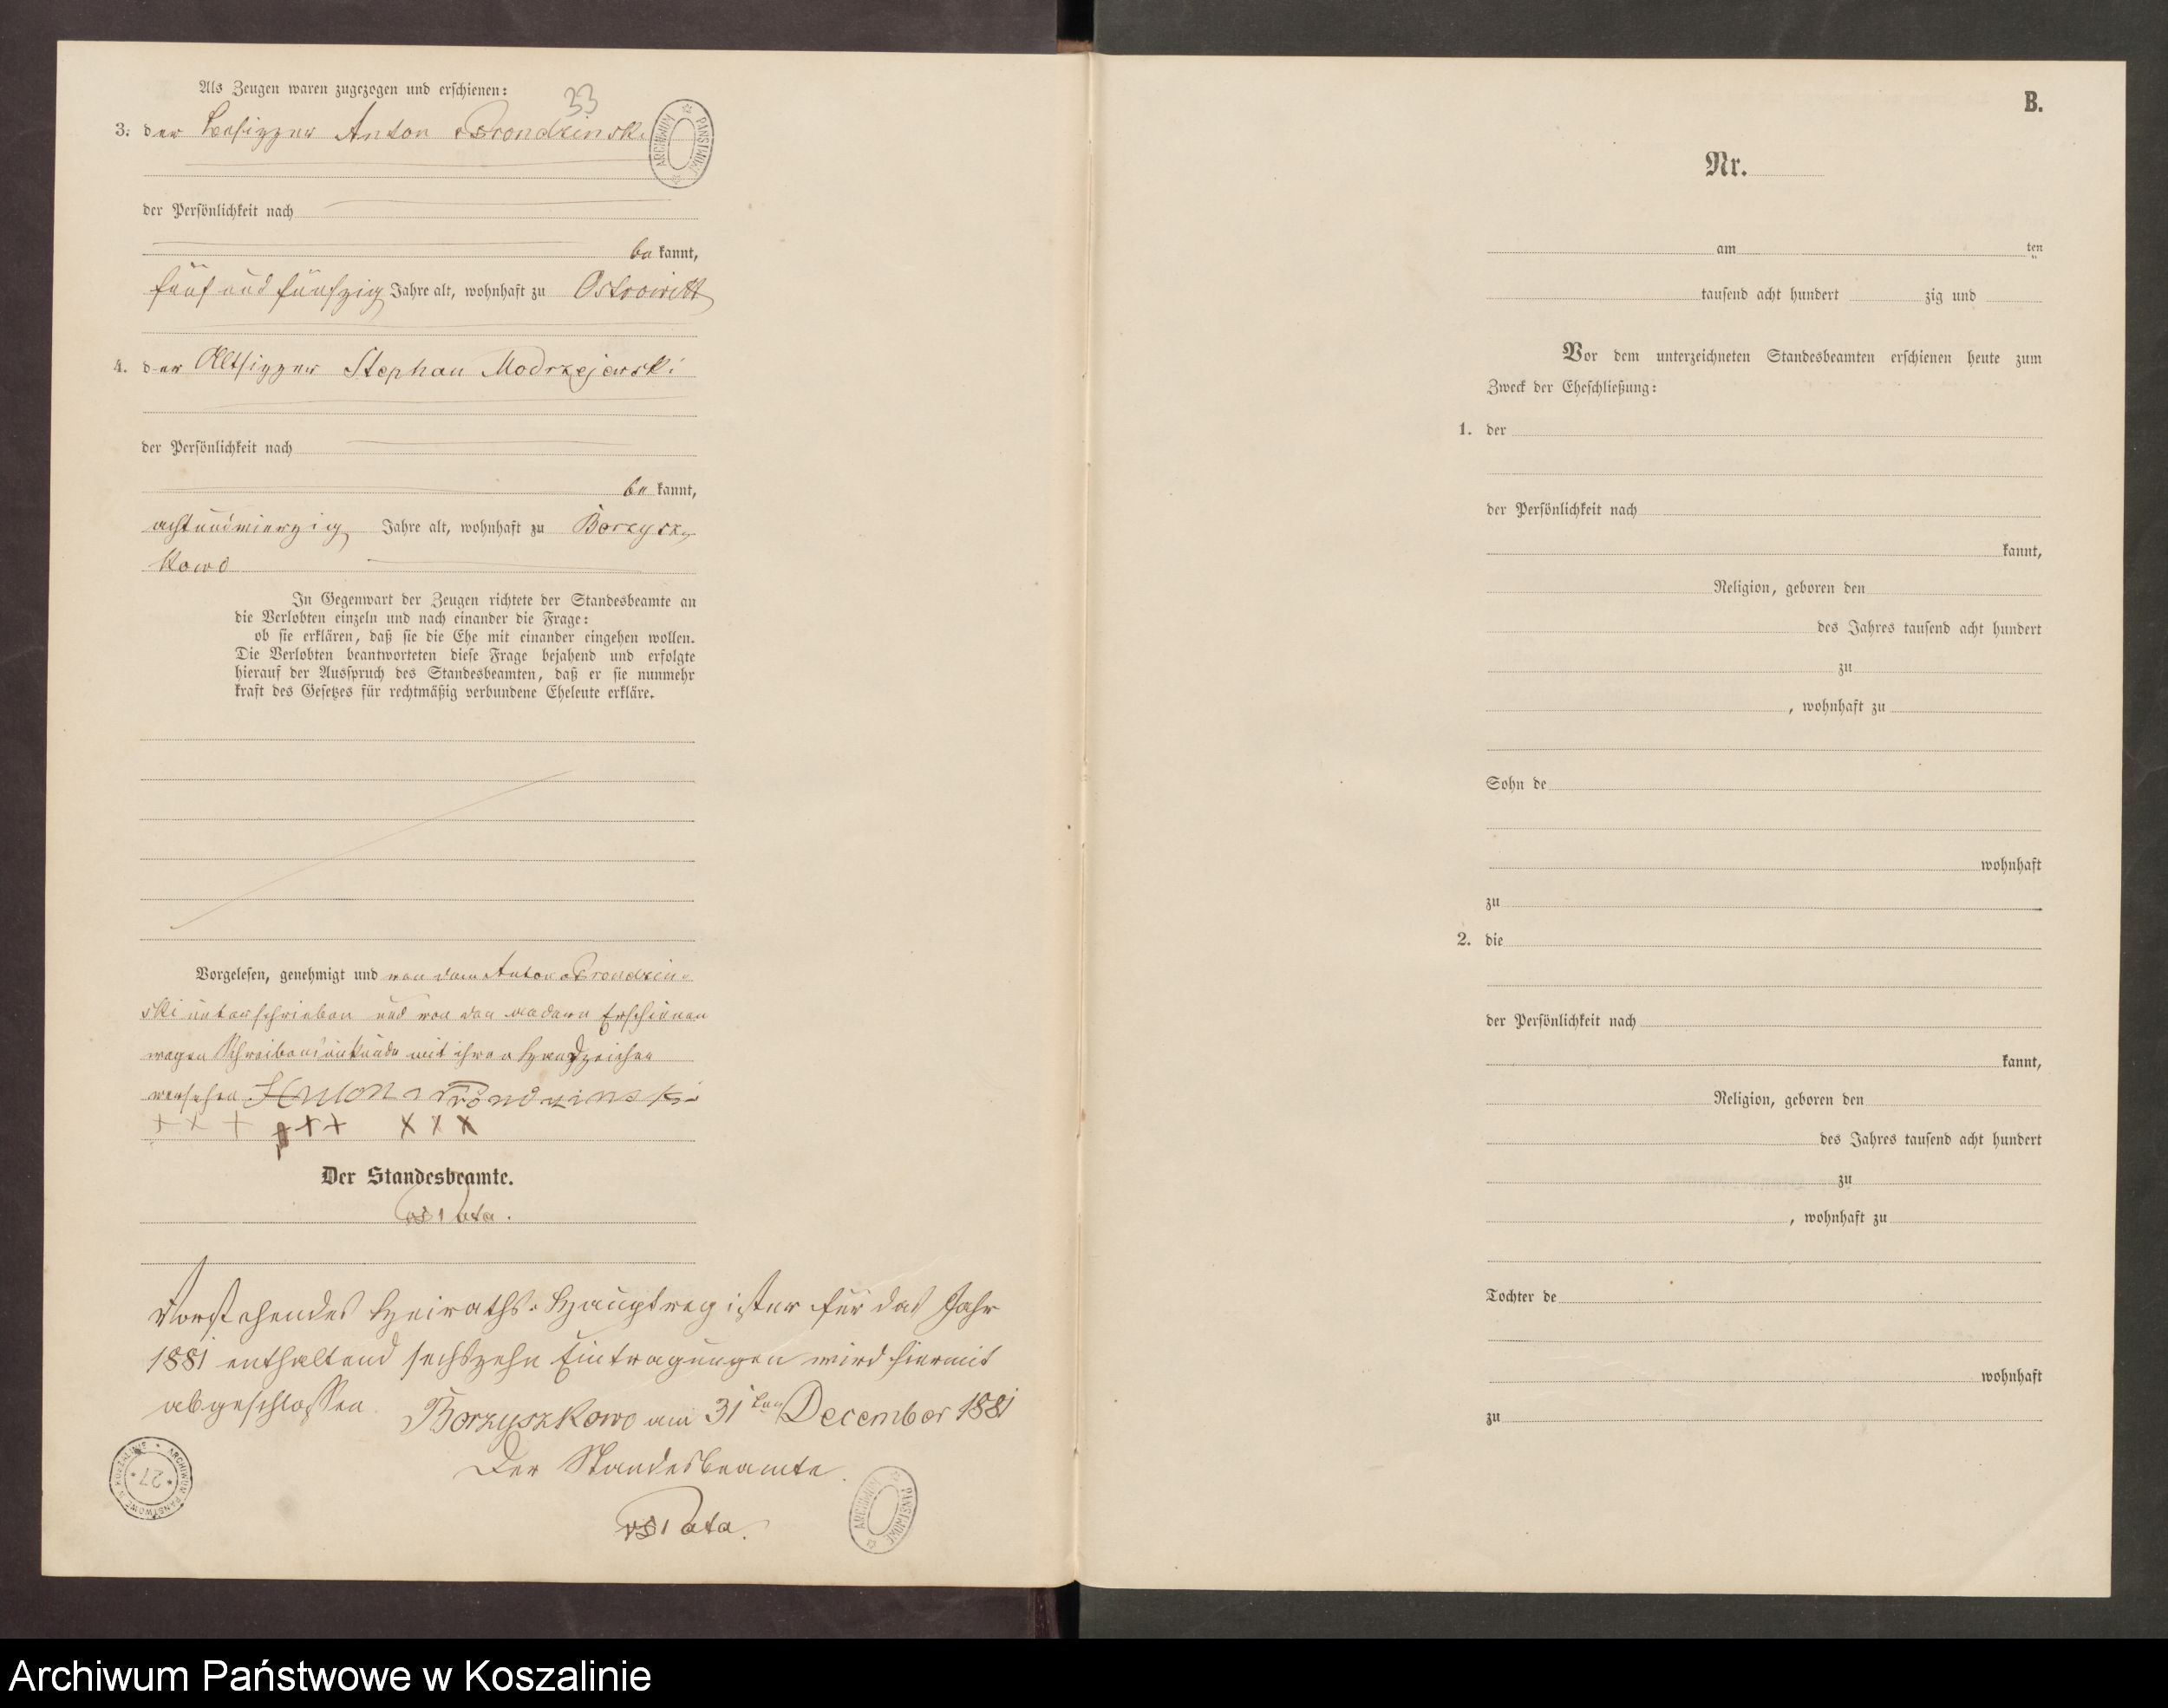 Als Zeugen waren zugezogen und erschienen:
33
3. der Besitzer Anton Prondzinski
ARCHIWUM PAŃSTWOWE
der Persönlichkeit nach
be kannt,
fünf und fünfzig Jahre alt, wohnhaft zu Ostrowitt
4. der Altsitzer Stephan Modrzejewski
der Persönlichkeit nach
be kannt,
achtundvierzig Jahre alt, wohnhaft zu Borzysz
kowo
In Gegenwart der Zeugen richtete der Standesbeamte an
die Verlobten einzeln und nach einander die Frage:
ob sie erklären, daß sie die Ehe mit einander eingehen wollen.
Die Verlobten beantworteten diese Frage bejahend und erfolgte
hierauf der Ausspruch des Standesbeamten, daß er sie nunmehr
kraft des Gesetzes für rechtmäßig verbundene Eheleute erkläre.
Vorgelesen, genehmigt und von dem Anton Prondzin-
ski unterschrieben und von den andern Erschienen
wegen Schreibensunkunde mit ihren Handzeichen
versehen Anton Prondzinski
+ + + + + + x x x
Der Standesbeamte.
Vorstehendes Heiraths-Hauptregister für das Jahr
1881 enthaltend sechszehn Eintragungen wird hiermit
abgeschlossen. Borzyszkowo am 31ten December 1881
Der Standesbeamte.
ARCHIWUM PAŃSTWOWE W KOSZALINIE
* 27 *
ARCHIWUM PAŃSTWOWE
B.
Nr.
am ten
tausend acht hundert zig und
Vor dem unterzeichneten Standesbeamten erschienen heute zum
Zweck der Eheschließung:
1. der
der Persönlichkeit nach
kannt,
Religion, geboren den
des Jahres tausend acht hundert
zu
, wohnhaft zu
Sohn de
wohnhaft
zu
2. die
der Persönlichkeit nach
kannt,
Religion, geboren den
des Jahres tausend acht hundert
zu
, wohnhaft zu
Tochter de
wohnhaft
zu
Archiwum Państwowe w Koszalinie